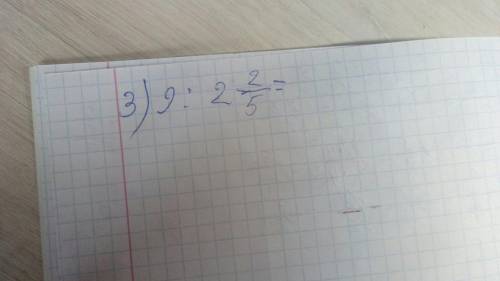 3) 9 : 2 2/5 =